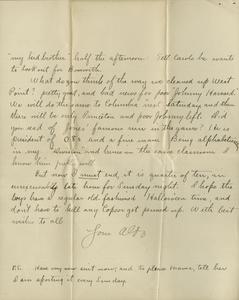 "my bed brother" half the afternoon. Tell Carole he wants
to look out for Bismith.
What do you think of the way we cleaned up West
Point? pretty good, and bad news for poor Johnny Harvard.
We will do the same to Columbia next Saturday and then
there will be only Princeton and poor Johnny left. Did
you read of Jones' famous run in the game? He is
President of and a fine man. Being alphabetically
in my Division and hence in the same classroom I
know him pretty well.
But now I must end, it is quarter of ten, an
unreasonably late hour for Sunday night. I hope the
boys have a regular old fashioned Halloween time, and
don't have to tell any Copson get pinned up. With best
wishes to all
Your
P.S. Have my new suit now, and to please Mama, tell her
I am sporting it every Sunday.